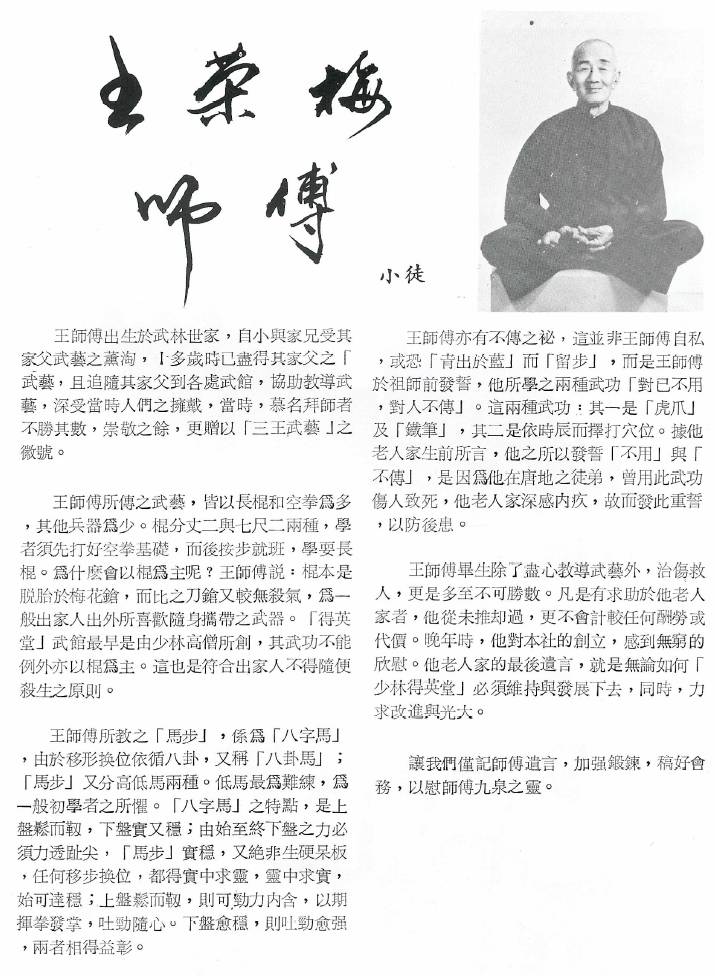 王榮梅
師傅
小徒
王師傅出生於武林世家，自小與家兄受其
家父武藝之薰淘，十多歲時已盡得其家父之「
武藝，且追隨其家父到各處武館，協助教導武
藝，深受當時人們之擁戴，當時，慕名拜師者
不勝其數，崇敬之餘，更贈以「三王武藝」之
徽號。
王師傅所傳之武藝，皆以長棍和空拳爲多
，其他兵器爲少。棍分丈二與七尺二兩種，學
者須先打好空拳基礎，而後按步就班，學耍長
棍。爲什麽會以棍爲主呢？王師傅説：棍本是
脱胎於梅花鎗，而比之刀鎗又較無殺氣，爲一
般出家人出外所喜歡隨身攜帶之武器。「得英
堂」武館最早是由少林高僧所創，其武功不能
例外亦以棍爲主。這也是符合出家人不得隨便
殺生之原則。
王師傅所教之「馬步」，係爲「八字馬」
，由於移形换位依循八卦，又稱「八卦馬」；
「馬步」又分高低馬兩種。低馬最爲難練，爲
一般初學者之所懼。「八字馬」之特點，是上
盤鬆而靱，下盤實又穩；由始至終下盤之力必
須力透趾尖，「馬步」實穩，又絶非生硬呆板
，任何移步換位，都得實中求靈，靈中求實，
始可達穩；上盤鬆而靱，則可勁力内含，以期
揮拳發掌，吐勁隨心。下盤愈穩，則吐勁愈强
，兩者相得益彰。
王師傅亦有不傳之祕，這並非王師傅自私
，或恐「青出於藍」而「留步」，而是王師傅
於祖師前發誓，他所學之兩種武功「對已不用
，對人不傳」。這兩種武功：其一是「虎爪」
及「鐵筆」，其二是依時辰而擇打穴位。據他
老人家生前所言，他之所以發誓「不用」與「
不傳」，是因爲他在唐地之徒弟，曾用此武功
傷人致死，他老人家深感内疚，故而發此重誓
，以防後患。
王師傅畢生除了盡心教導武藝外，治傷救
人，更是多至不可勝數。凡是有求助於他老人
家者，他從未推却過，更不會計較任何酬勞或
代價。晚年時，他對本社的創立，感到無窮的
欣慰。他老人家的最後遺言，就是無論如何「
少林得英堂」必須維持與發展下去，同時，力
求改進與光大。
讓我們僅記師傅遺言，加强鍛鍊，稿好會
務，以慰師傅九泉之靈。